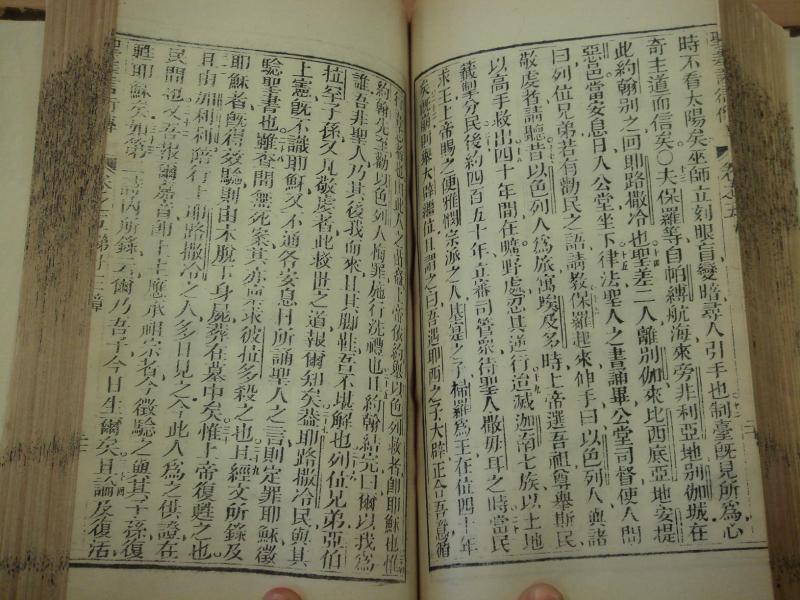 時不看太陽矣巫師立刻眼盲變暗尋人引手也制臺旣見所爲心
奇主道而信矣○夫保羅等自帕縛航海來旁非利亞地別伽城在
此約翰別之回耶路撒冷也聖差二人離別伽來比西底亞地安提
惡邑當安息日入公堂坐下律法聖人之書誦畢公堂司督使人問
曰列位兄弟若有勸民之語請教保羅起來伸手曰以色列人與諸
敬虔者請聽昔以色列人爲旅寓埃及多時上帝選吾祖尊舉斯民
以高手救出四十年間在曠野處忍其逆行迨滅迦南七族以土地
籤掣分民後約四百五十年立審司管衆待聖人撒母耳之時當民
求王上帝賜之便雅憫宗派之人基宣之子掃羅爲王在位四十年
矣旣廢則舉大辟繼位且謂之曰吾遇耶西之子大辟正合吾意循
行吾
此人之
上帝依約與以色列救者卽耶穌也惟
約翰先至勸以色列人悔罪施行洗禮也且約翰結完曰爾以我爲
誰吾非聖人乃其後我而來且其脚鞋吾不堪解也列位兄弟亞伯
拉罕子孫又凡敬虔者此救世之道報爾知矣蓋耶路撒冷民與其
上憲旣不識耶穌又不通各安息日所誦聖人之言則定罪耶穌徵
驗聖書也雖查問無死案其亦原求彼拉多殺之也且經文所錄及
耶穌者旣得效驗則由木脫下身屍葬在墓中矣惟上帝復甦之也
且由加利利陪行上耶路撒冷之人多日見之今此人爲之供證在
民間也又吾報爾嘉音卽上帝應承祖宗者今徵驗之與其子孫復
甦耶穌矣如第二詩內所錄云爾乃吾子今日生爾矣且論及復活